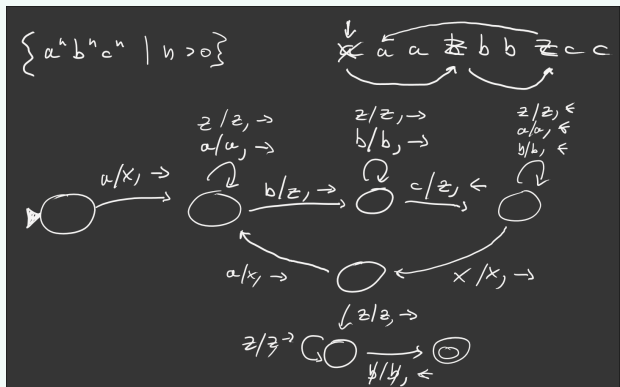 { aⁿ bⁿ cⁿ | n > 0 }
x a a z b b z c c
z/z, →
a/a, →
z/z, →
b/b, →
z/z, ←
a/a, ←
b/b, ←
a/x, →
b/z, →
c/z, ←
a/x, →
x/x, →
z/z, →
z/z, →
ƀ/ƀ, ←